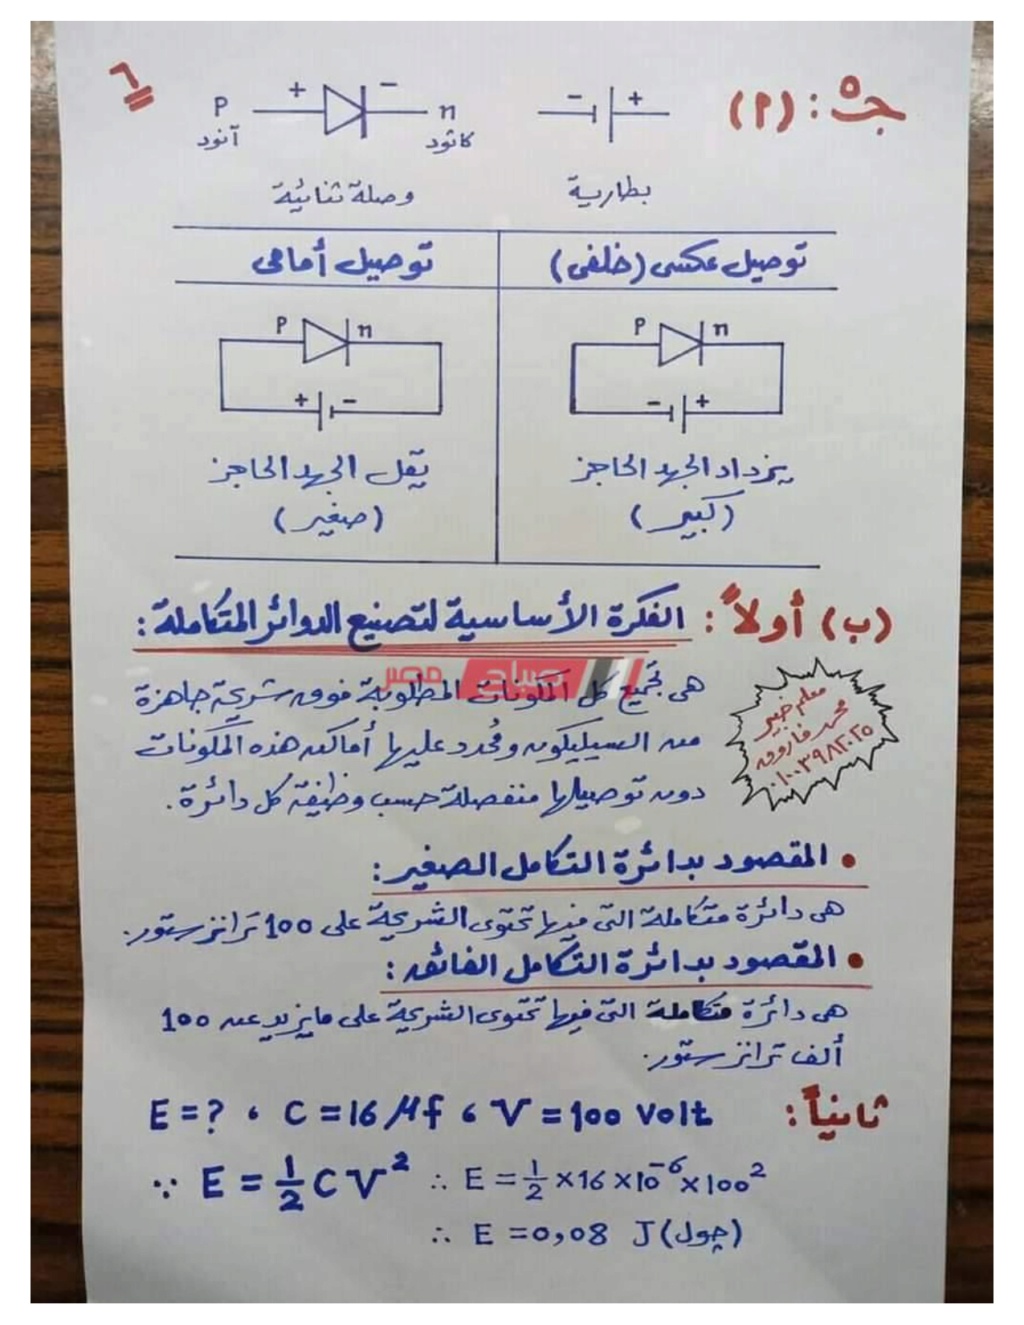 ٦
جـ ٥ : (٢)
- +
بطارية
P + - n
آنود كاثود
وصلة ثنائية
توصيل عكسى (خلفى)
توصيل أمامى
P n
- +
يزداد الجهد الحاجز
(كبير)
P n
+ -
يقل الجهد الحاجز
(صغير)
(ب) أولاً : الفكرة الأساسية لتصنيع الدوائر المتكاملة :
صباح مصر
هى تجميع كل المكونات المطلوبة فوق شريحة جاهزة
من السيليكون ومُحدد عليها أماكن هذه المكونات
دون توصيلها منفصلة حسب وظيفة كل دائرة .
معلم خبير
محمد فاروق
٠١٠٠٣٩٨٢٠٢٥
• المقصود بدائرة التكامل الصغير :
هى دائرة متكاملة التى فيها تحتوى الشريحة على 100 ترانزستور .
• المقصود بدائرة التكامل الفائق :
هى دائرة متكاملة التى فيها تحتوى الشريحة على مايزيد عن 100
ألف ترانزستور .
ثانياً :
E = ? ، C = 16 μf ، V = 100 volt
∵ E = 1/2 C V² ∴ E = 1/2 × 16 × 10⁻⁶ × 100²
∴ E = 0,08 J (چول)